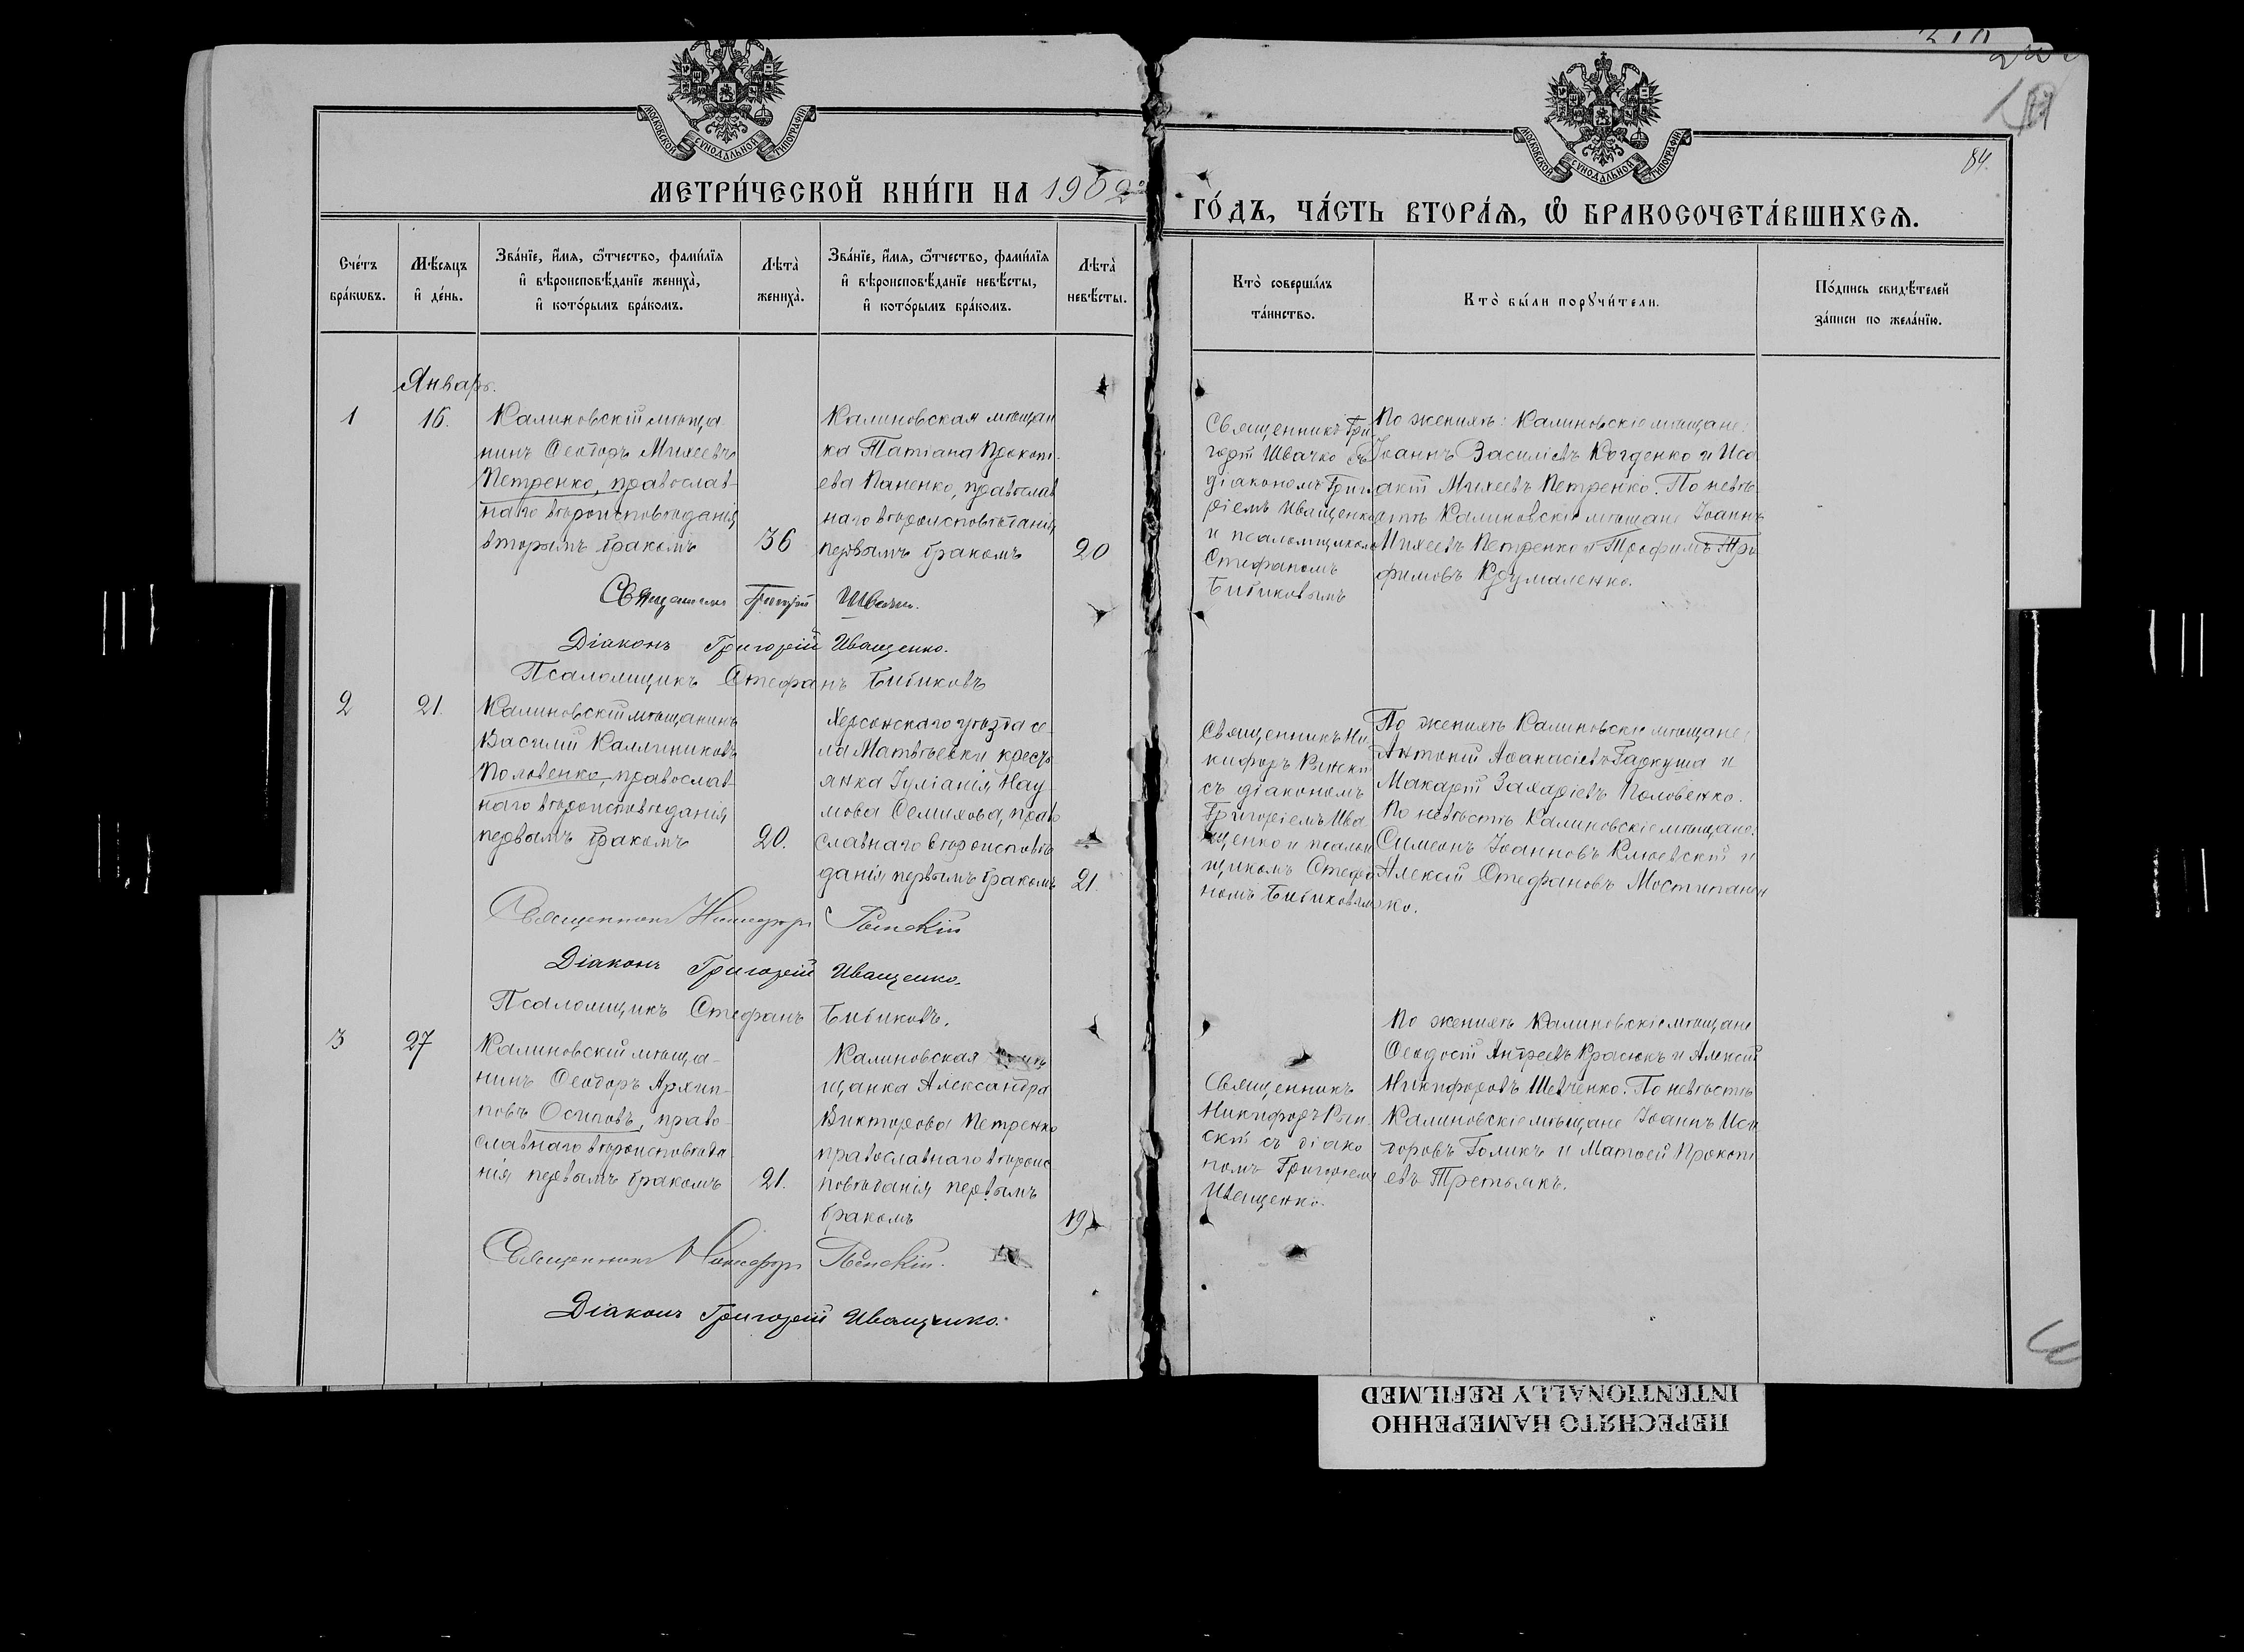 84.
МОСКОВСКОЙ СѴНОДАЛЬНОЙ ТИПОГРАФІИ.
МОСКОВСКОЙ СѴНОДАЛЬНОЙ ТИПОГРАФІИ.
МЕТРИ́ЧЕСКОЙ КНИ́ГИ НА 1902
ГО́ДЪ, ЧА́СТЬ ВТОРА́Ѧ, Ѽ БРАКОСОЧЕТА́ВШИХСѦ.
Сче́тъ
бра́кѡвъ.
Мѣ́сѧцъ
и҆ де́нь.
Зва́нїе, и҆́мѧ, ѻ҆́тчество, фами́лїѧ
и҆ вѣроисповѣ́данїе жениха̀,
и҆ кото́рымъ бра́комъ.
Лѣта̀
жениха̀.
Зва́нїе, и҆́мѧ, ѻ҆́тчество, фами́лїѧ
и҆ вѣроисповѣ́данїе невѣ́сты,
и҆ кото́рымъ бра́комъ.
Лѣта̀
невѣ́сты.
Кто̀ соверша́лъ
та́инство.
Кто̀ бы́ли порꙋчи́тели.
По́дпись свидѣ́телей
за́писи по жела́нїю.
Январь.
1
16.
Калиновскій мѣща
нинъ Ѳеодоръ Михеевъ
Петренко, православ-
наго вѣроисповѣданія,
вторымъ бракомъ
36
Калиновская мѣщан
ка Татіана Прокопі-
ева Паненко, православ
наго вѣроисповѣданія
первымъ бракомъ
20
Священникъ Гри
горій Швачко съ
діакономъ Григо
ріемъ Иващенко
и псаломщикомъ
Стефаномъ
Бибиковымъ
По женихѣ: Калиновскіе мѣщане:
Іоаннъ Василіевъ Когденко и Иса
акій Михеевъ Петренко. По невѣ
стѣ Калиновскіе мѣщане Іоаннъ
Михеевъ Петренко и Трофимъ Тро
фимовъ Крумаленко.
Священникъ Григорій Швачко.
Діаконъ Григорій Иващенко.
Псаломщикъ Стефанъ Бибиковъ
2
21.
Калиновскій мѣщанинъ
Василій Каллиниковъ
Половенко, православ-
наго вѣроисповѣданія
первымъ бракомъ
20.
Херсонскаго уѣзда се
ла Матвѣевки крестъ
янка Іуліанія Нау
мова Семихова, право
славнаго вѣроисповѣ
данія первымъ бракомъ
21.
Священникъ Ни
кифоръ Рынскій
съ діакономъ
Григоріемъ Ива
щенко и псалом
щикомъ Стефа
номъ Бибиковым
По женихѣ Калиновскіе мѣщане:
Антоній Аѳанасіевъ Гаркуша и
Макарій Захаріевъ Половенко.
По невѣстѣ Калиновскіе мѣщане:
Симеонъ Іоанновъ Клюевскій и
Алексій Стефановъ Мостипанен
ко.
Священникъ Никифоръ Рынскій
Діаконъ Григорій Иващенко.
Псаломщикъ Стефанъ Бибиковъ.
3
27
Калиновскій мѣща-
нинъ Ѳеодоръ Архип-
повъ Осиповъ, право-
славнаго вѣроисповѣда
нія первымъ бракомъ
21.
Калиновская
щанка Александра
Викторова Петренко
православнаго вѣроис
повѣданія первымъ
бракомъ
19
Священникъ
Никифоръ Рын-
скій съ діако
номъ Григоріемъ
Иващенко.
По женихѣ Калиновскіе мѣщане
Ѳеодосій Андреевъ Красюкъ и Алексій
Никифоровъ Шевченко. По невѣстѣ
Калиновскіе мѣщане Іоаннъ Иси
доровъ Голикъ и Матѳей Прокопі
евъ Третьякъ.
Священникъ Никифоръ Рынскій.
Діаконъ Григорій Иващенко.
ПЕРЕСНЯТО НАМЕРЕННО
INTENTIONALLY REFILMED